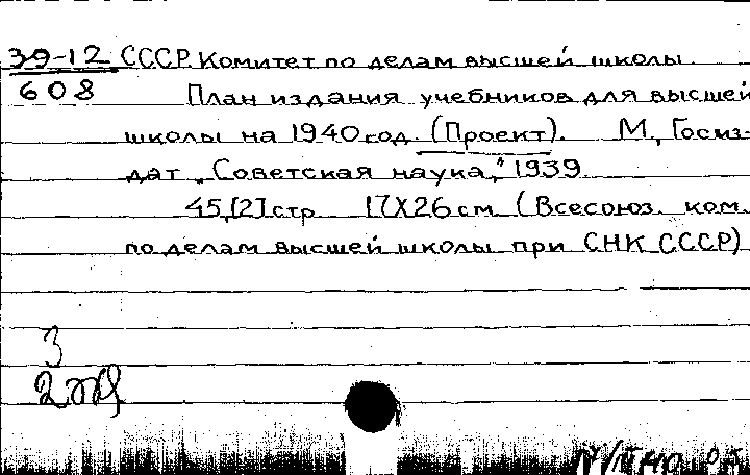 39-12 СССР. Комитет по делам высшей школы.
608 План издания учебников для высшей
школы на 1940 год. (Проект). М., Госиз-
дат „Советская наука," 1939.
45,[2] стр. 17X26 см. (Всесоюз. ком.
по делам высшей школы при СНК СССР)
3